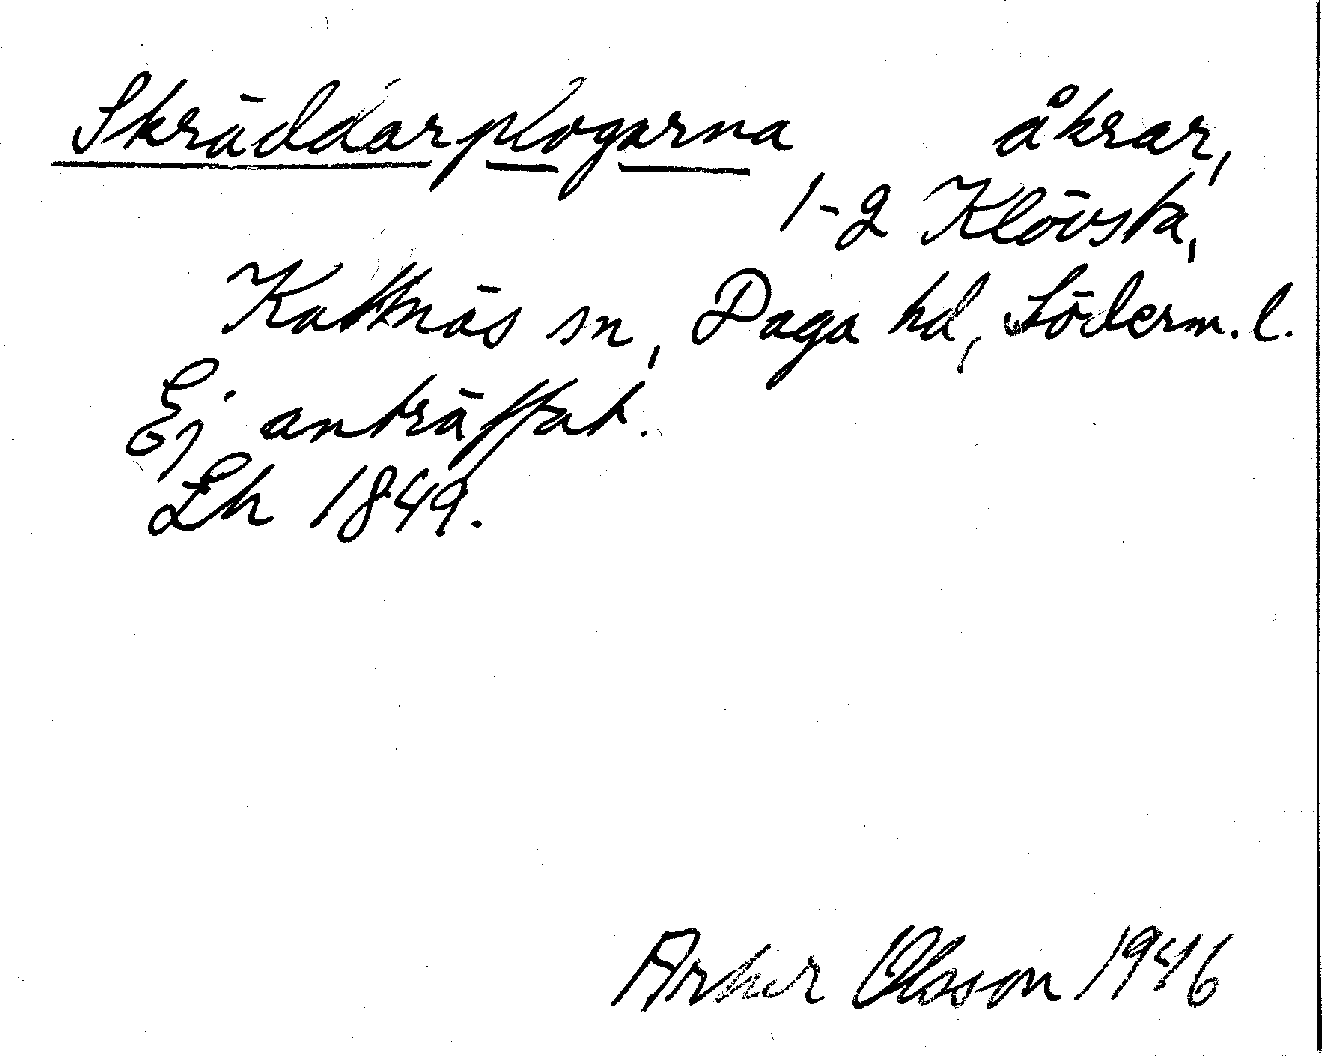 Skräddarplogarna åkrar,
1-2 Klövsta,
Kattnäs sn, Daga hd, Söderm. l.
Ej anträffat.
Lh 1849.
Artur Olsson 1946